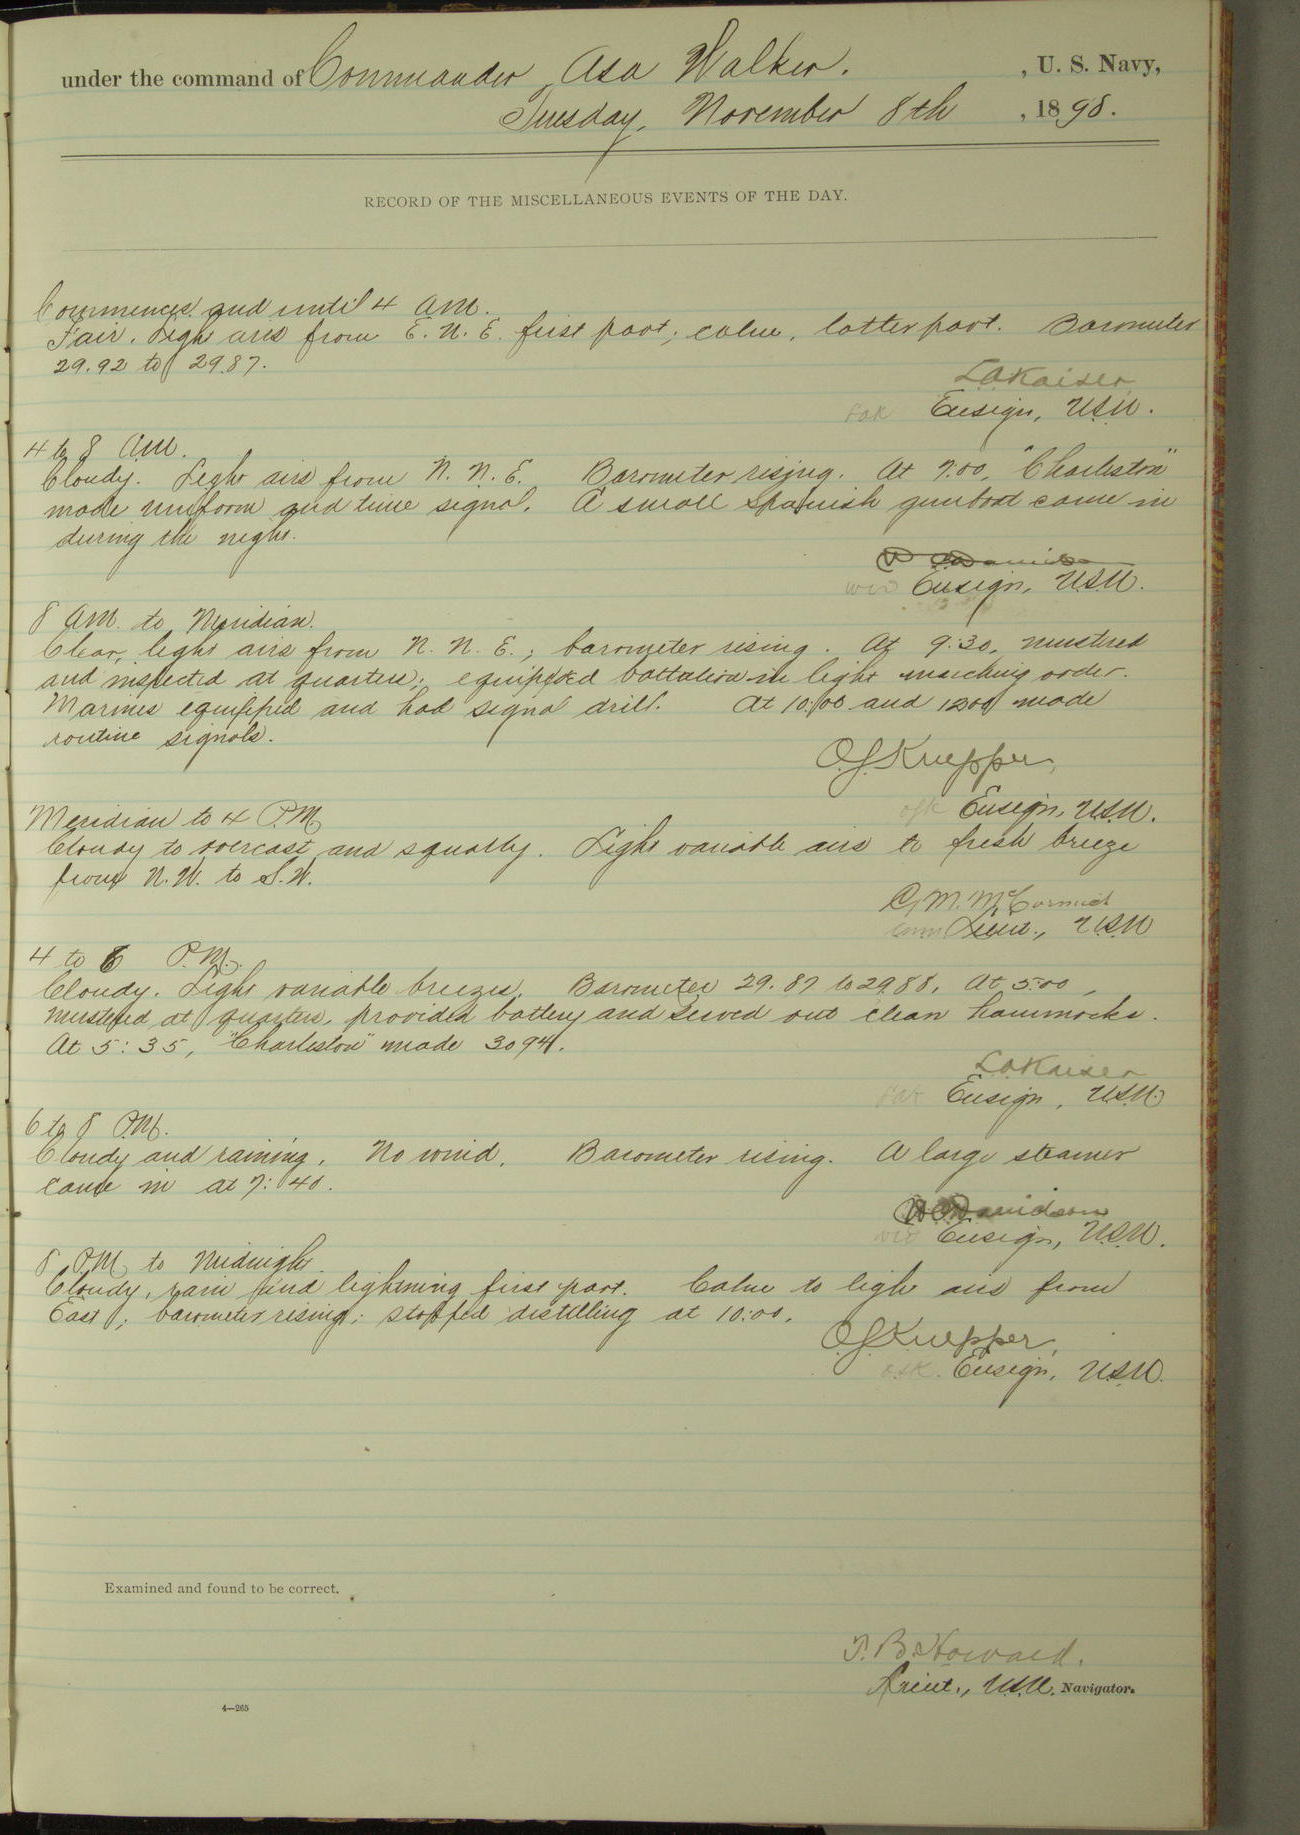 under the command of Commander Asa Walker. , U. S. Navy,
Tuesday, November 8th , 1898.
RECORD OF THE MISCELLANEOUS EVENTS OF THE DAY.
Commences and until 4 AM.
Fair. Light airs from E. N. E. first part; calm, latter part. Barometer
29.92 to 29.87.
L.A. Kaiser
LAK Ensign, U.S.N.
4 to 8 AM.
Cloudy. Light airs from N. N. E. Barometer rising. At 7.00, "Charleston"
made uniform and time signal. A small Spanish gunboat came in
during the night.
W C Davidson
WCD Ensign, U.S.N.
8 AM. to Meridian.
Clear, light airs from N. N. E.; barometer rising. At 9:30, mustered
and inspected at quarters; equipped battalion in light marching order.
Marines equipped and had signal drill. At 10:00 and 12:00 made
routine signals.
O.G. Kuepper,
Ensign, U.S.N.
Meridian to 4 P.M.
Cloudy to overcast and squally. Light variable airs to fresh breeze
from N.W. to S.W.
C.M. McCormick
Lieut., U.S.N
4 to 6 P.M.
Cloudy. Light variable breezes. Barometer 29.87 to 29.88. At 5:00,
mustered at quarters, provided battery and served out clean hammocks.
At 5:35, "Charleston" made 3094.
L.A. Kaiser
LAK Ensign, U.S.N.
6 to 8 P.M.
Cloudy and raining. No wind. Barometer rising. A large steamer
came in at 7:40.
W C Davidson
WCD Ensign, U.S.N.
8 P.M. to Midnight.
Cloudy, rain and lightning first part. Calm to light airs from
East; barometer rising; stopped distilling at 10:00.
O.G. Kuepper,
Ensign, U.S.N.
Examined and found to be correct.
T. B. Howard.
Lieut., U.S.N. Navigator.
4—265